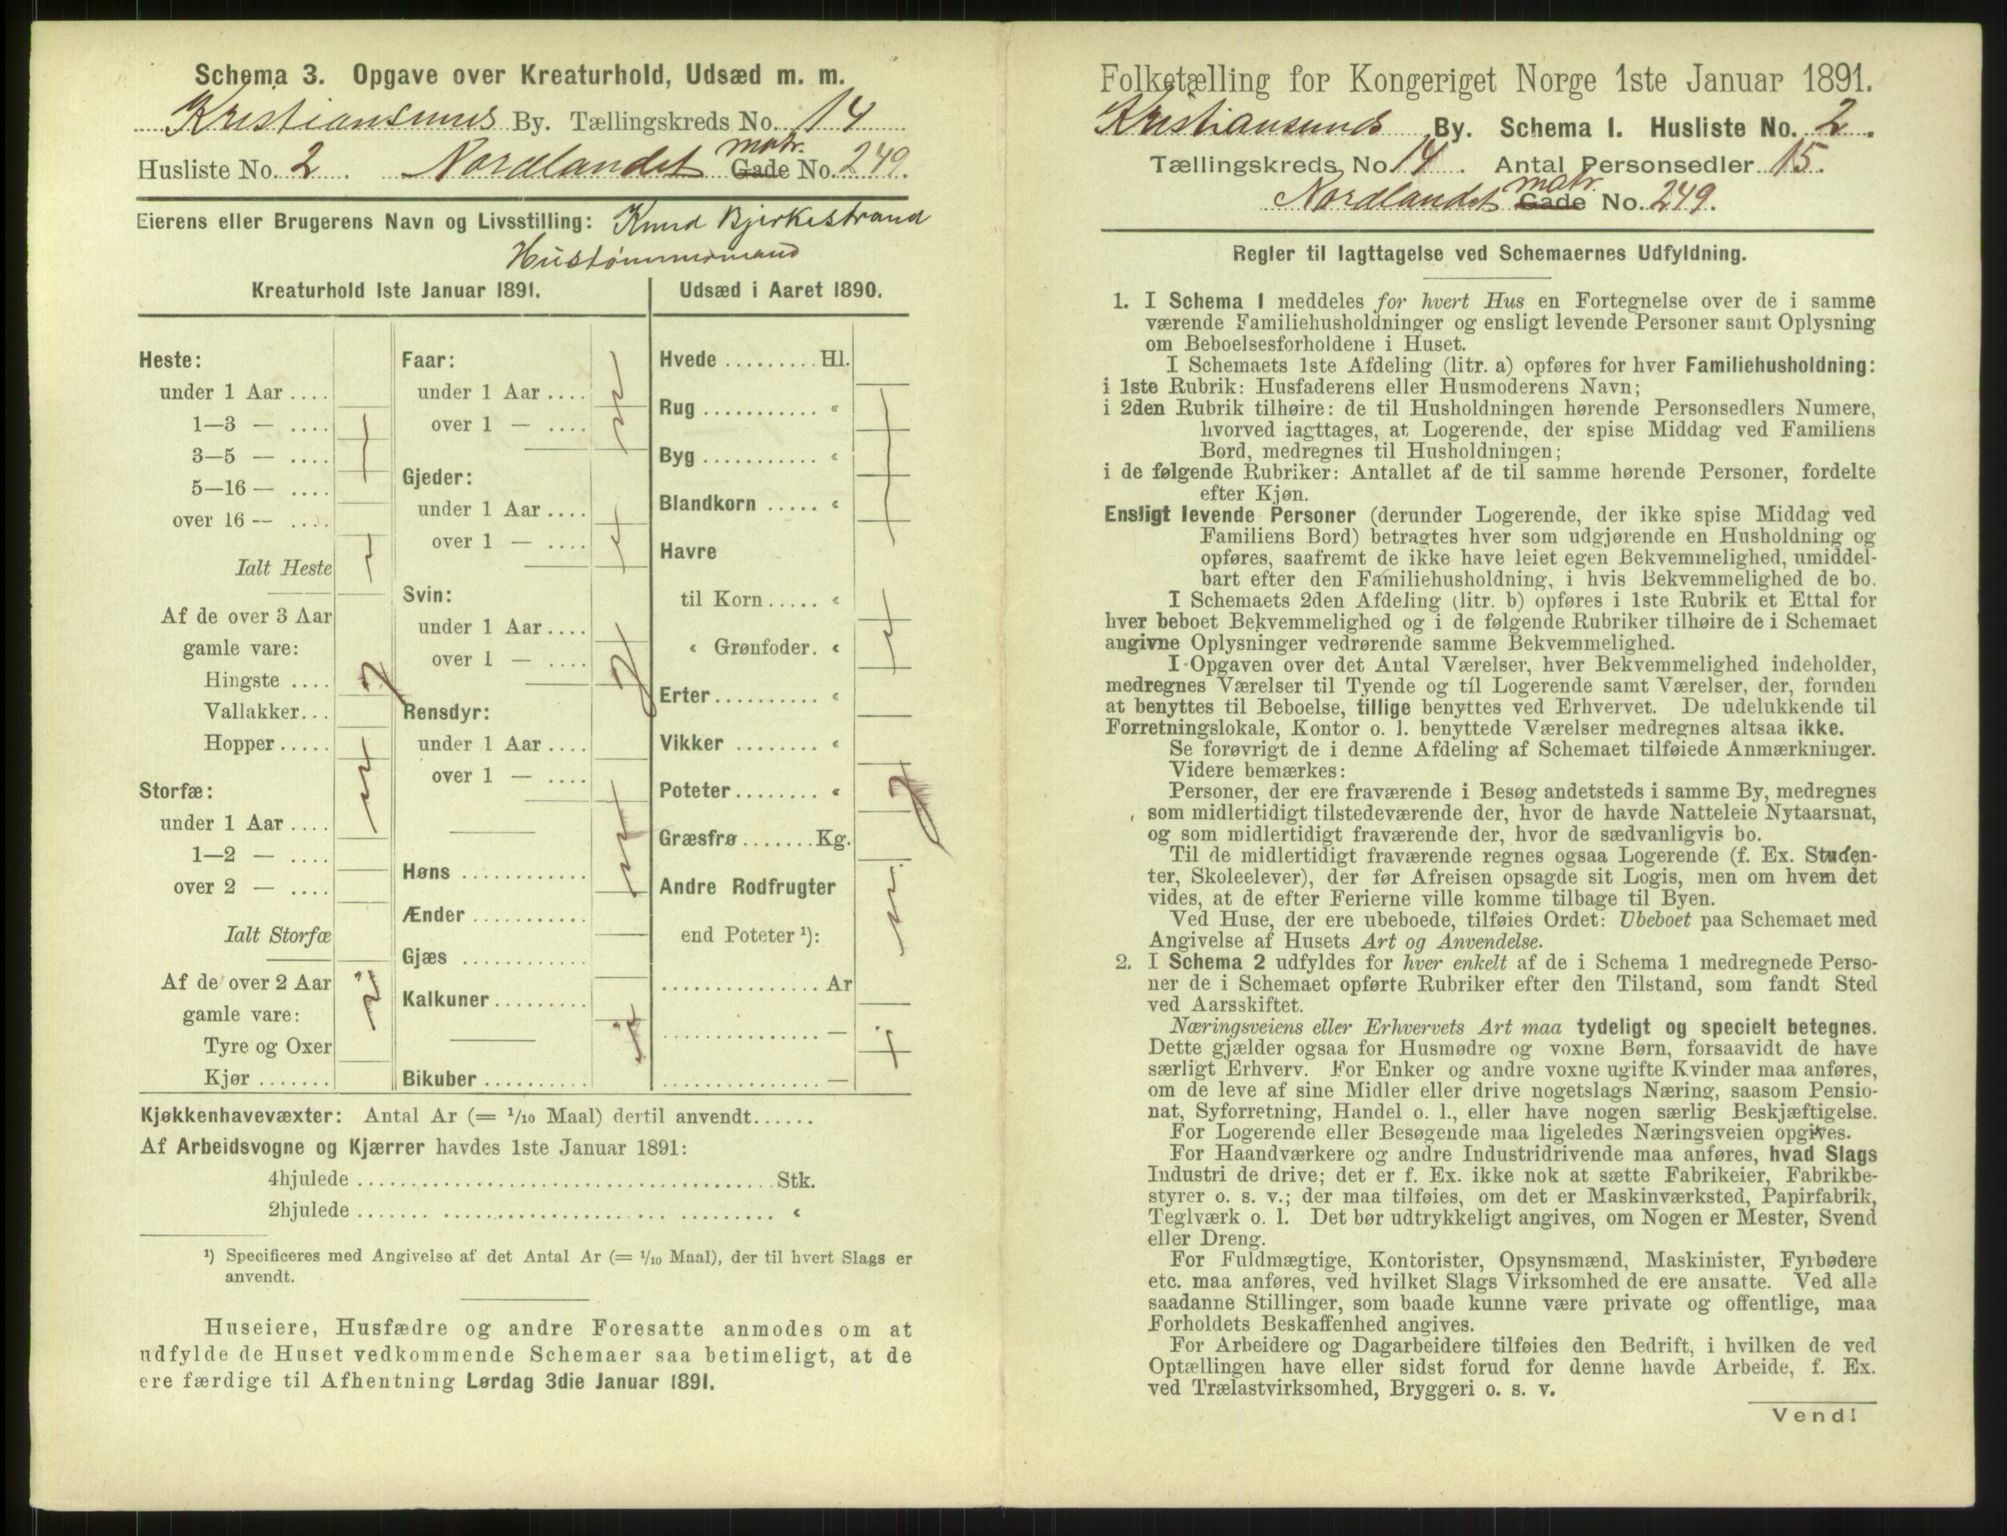 Schema 3. Opgave over Kreaturhold, Udsæd m. m.
Kristiansunds By. Tællingskreds No. 14
Husliste No. 2. Nordlandet matr. Gade No. 249.
Eierens eller Brugerens Navn og Livsstilling: Knud Bjerkestrand
Hustømmermand
Kreaturhold 1ste Januar 1891.
Heste:
under 1 Aar ....
1—3 — ....
3—5 — ....
5—16 — ....
over 16 — ....
Ialt Heste
Af de over 3 Aar
gamle vare:
Hingste ....
Vallakker...
Hopper.....
Storfæ:
under 1 Aar ....
1—2 — ....
over 2 — ....
Ialt Storfæ
Af de over 2 Aar
gamle vare:
Tyre og Oxer
Kjør.......
Faar:
under 1 Aar ....
over 1 — ....
Gjeder:
under 1 Aar ....
over 1 — ....
Svin:
under 1 Aar....
over 1 — ....
Rensdyr:
under 1 Aar....
over 1 — ....
Høns ...........
Ænder ...........
Gjæs ...........
Kalkuner.........
Bikuber ..........
Udsæd i Aaret 1890.
Hvede ......... Hl.
Rug ........... "
Byg ........... "
Blandkorn ..... "
Havre
til Korn ..... "
" Grønfoder. "
Erter .......... "
Vikker ........ "
Poteter........ "
Græsfrø ....... Kg.
Andre Rodfrugter
end Poteter ¹):
............... Ar
............... —
............... —
Kjøkkenhavevæxter: Antal Ar (= 1/10 Maal) dertil anvendt......
Af Arbeidsvogne og Kjærrer havdes 1ste Januar 1891:
4hjulede ........................................ Stk.
2hjulede ........................................ "
¹) Specificeres med Angivelse af det Antal Ar (= 1/10 Maal), der til hvert Slags er
anvendt.
Huseiere, Husfædre og andre Foresatte anmodes om at
udfylde de Huset vedkommende Schemaer saa betimeligt, at de
ere færdige til Afhentning Lørdag 3die Januar 1891.
Folketælling for Kongeriget Norge 1ste Januar 1891.
Kristiansunds By. Schema 1. Husliste No. 2.
Tællingskreds No 14. Antal Personsedler 15.
Nordlandet matr. Gade No. 249.
Regler til Iagttagelse ved Schemaernes Udfyldning.
1. I Schema 1 meddeles for hvert Hus en Fortegnelse over de i samme
værende Familiehusholdninger og ensligt levende Personer samt Oplysning
om Beboelsesforholdene i Huset.
I Schemaets 1ste Afdeling (litr. a) opføres for hver Familiehusholdning:
i 1ste Rubrik: Husfaderens eller Husmoderens Navn;
i 2den Rubrik tilhøire: de til Husholdningen hørende Personsedlers Numere,
hvorved iagttages, at Logerende, der spise Middag ved Familiens
Bord, medregnes til Husholdningen;
i de følgende Rubriker: Antallet af de til samme hørende Personer, fordelte
efter Kjøn.
Ensligt levende Personer (derunder Logerende, der ikke spise Middag ved
Familiens Bord) betragtes hver som udgjørende en Husholdning og
opføres, saafremt de ikke have leiet egen Bekvemmelighed, umiddel-
bart efter den Familiehusholdning, i hvis Bekvemmelighed de bo.
I Schemaets 2den Afdeling (litr. b) opføres i 1ste Rubrik et Ettal for
hver beboet Bekvemmelighed og i de følgende Rubriker tilhøire de i Schemaet
angivne Oplysninger vedrørende samme Bekvemmelighed.
I Opgaven over det Antal Værelser, hver Bekvemmelighed indeholder,
medregnes Værelser til Tyende og til Logerende samt Værelser, der, foruden
at benyttes til Beboelse, tillige benyttes ved Erhvervet. De udelukkende til
Forretningslokale, Kontor o. l. benyttede Værelser medregnes altsaa ikke.
Se forøvrigt de i denne Afdeling af Schemaet tilføiede Anmærkninger.
Videre bemærkes:
Personer, der ere fraværende i Besøg andetsteds i samme By, medregnes
som midlertidigt tilstedeværende der, hvor de havde Natteleie Nytaarsnat,
og som midlertidigt fraværende der, hvor de sædvanligvis bo.
Til de midlertidigt fraværende regnes ogsaa Logerende (f. Ex. Studen-
ter, Skoleelever), der før Afreisen opsagde sit Logis, men om hvem det
vides, at de efter Ferierne ville komme tilbage til Byen.
Ved Huse, der ere ubeboede, tilføies Ordet: Ubeboet paa Schemaet med
Angivelse af Husets Art og Anvendelse.
2. I Schema 2 udfyldes for hver enkelt af de i Schema 1 medregnede Perso-
ner de i Schemaet opførte Rubriker efter den Tilstand, som fandt Sted
ved Aarsskiftet.
Næringsveiens eller Erhvervets Art maa tydeligt og specielt betegnes.
Dette gjælder ogsaa for Husmødre og voxne Børn, forsaavidt de have
særligt Erhverv. For Enker og andre voxne ugifte Kvinder maa anføres,
om de leve af sine Midler eller drive nogetslags Næring, saasom Pensio-
nat, Syforretning, Handel o. l., eller have nogen særlig Beskjæftigelse.
For Logerende eller Besøgende maa ligeledes Næringsveien opgives.
For Haandværkere og andre Industridrivende maa anføres, hvad Slags
Industri de drive; det er f. Ex. ikke nok at sætte Fabrikeier, Fabrikbe-
styrer o. s. v.; der maa tilføies, om det er Maskinværksted, Papirfabrik,
Teglværk o. l. Det bør udtrykkeligt angives, om Nogen er Mester, Svend
eller Dreng.
For Fuldmægtige, Kontorister, Opsynsmænd, Maskinister, Fyrbødere
etc. maa anføres, ved hvilket Slags Virksomhed de ere ansatte. Ved alle
saadanne Stillinger, som baade kunne være private og offentlige, maa
Forholdets Beskaffenhed angives.
For Arbeidere og Dagarbeidere tilføies den Bedrift, i hvilken de ved
Optællingen have eller sidst forud for denne havde Arbeide, f. Ex.
ved Trælastvirksomhed, Bryggeri o. s. v.
Vend!